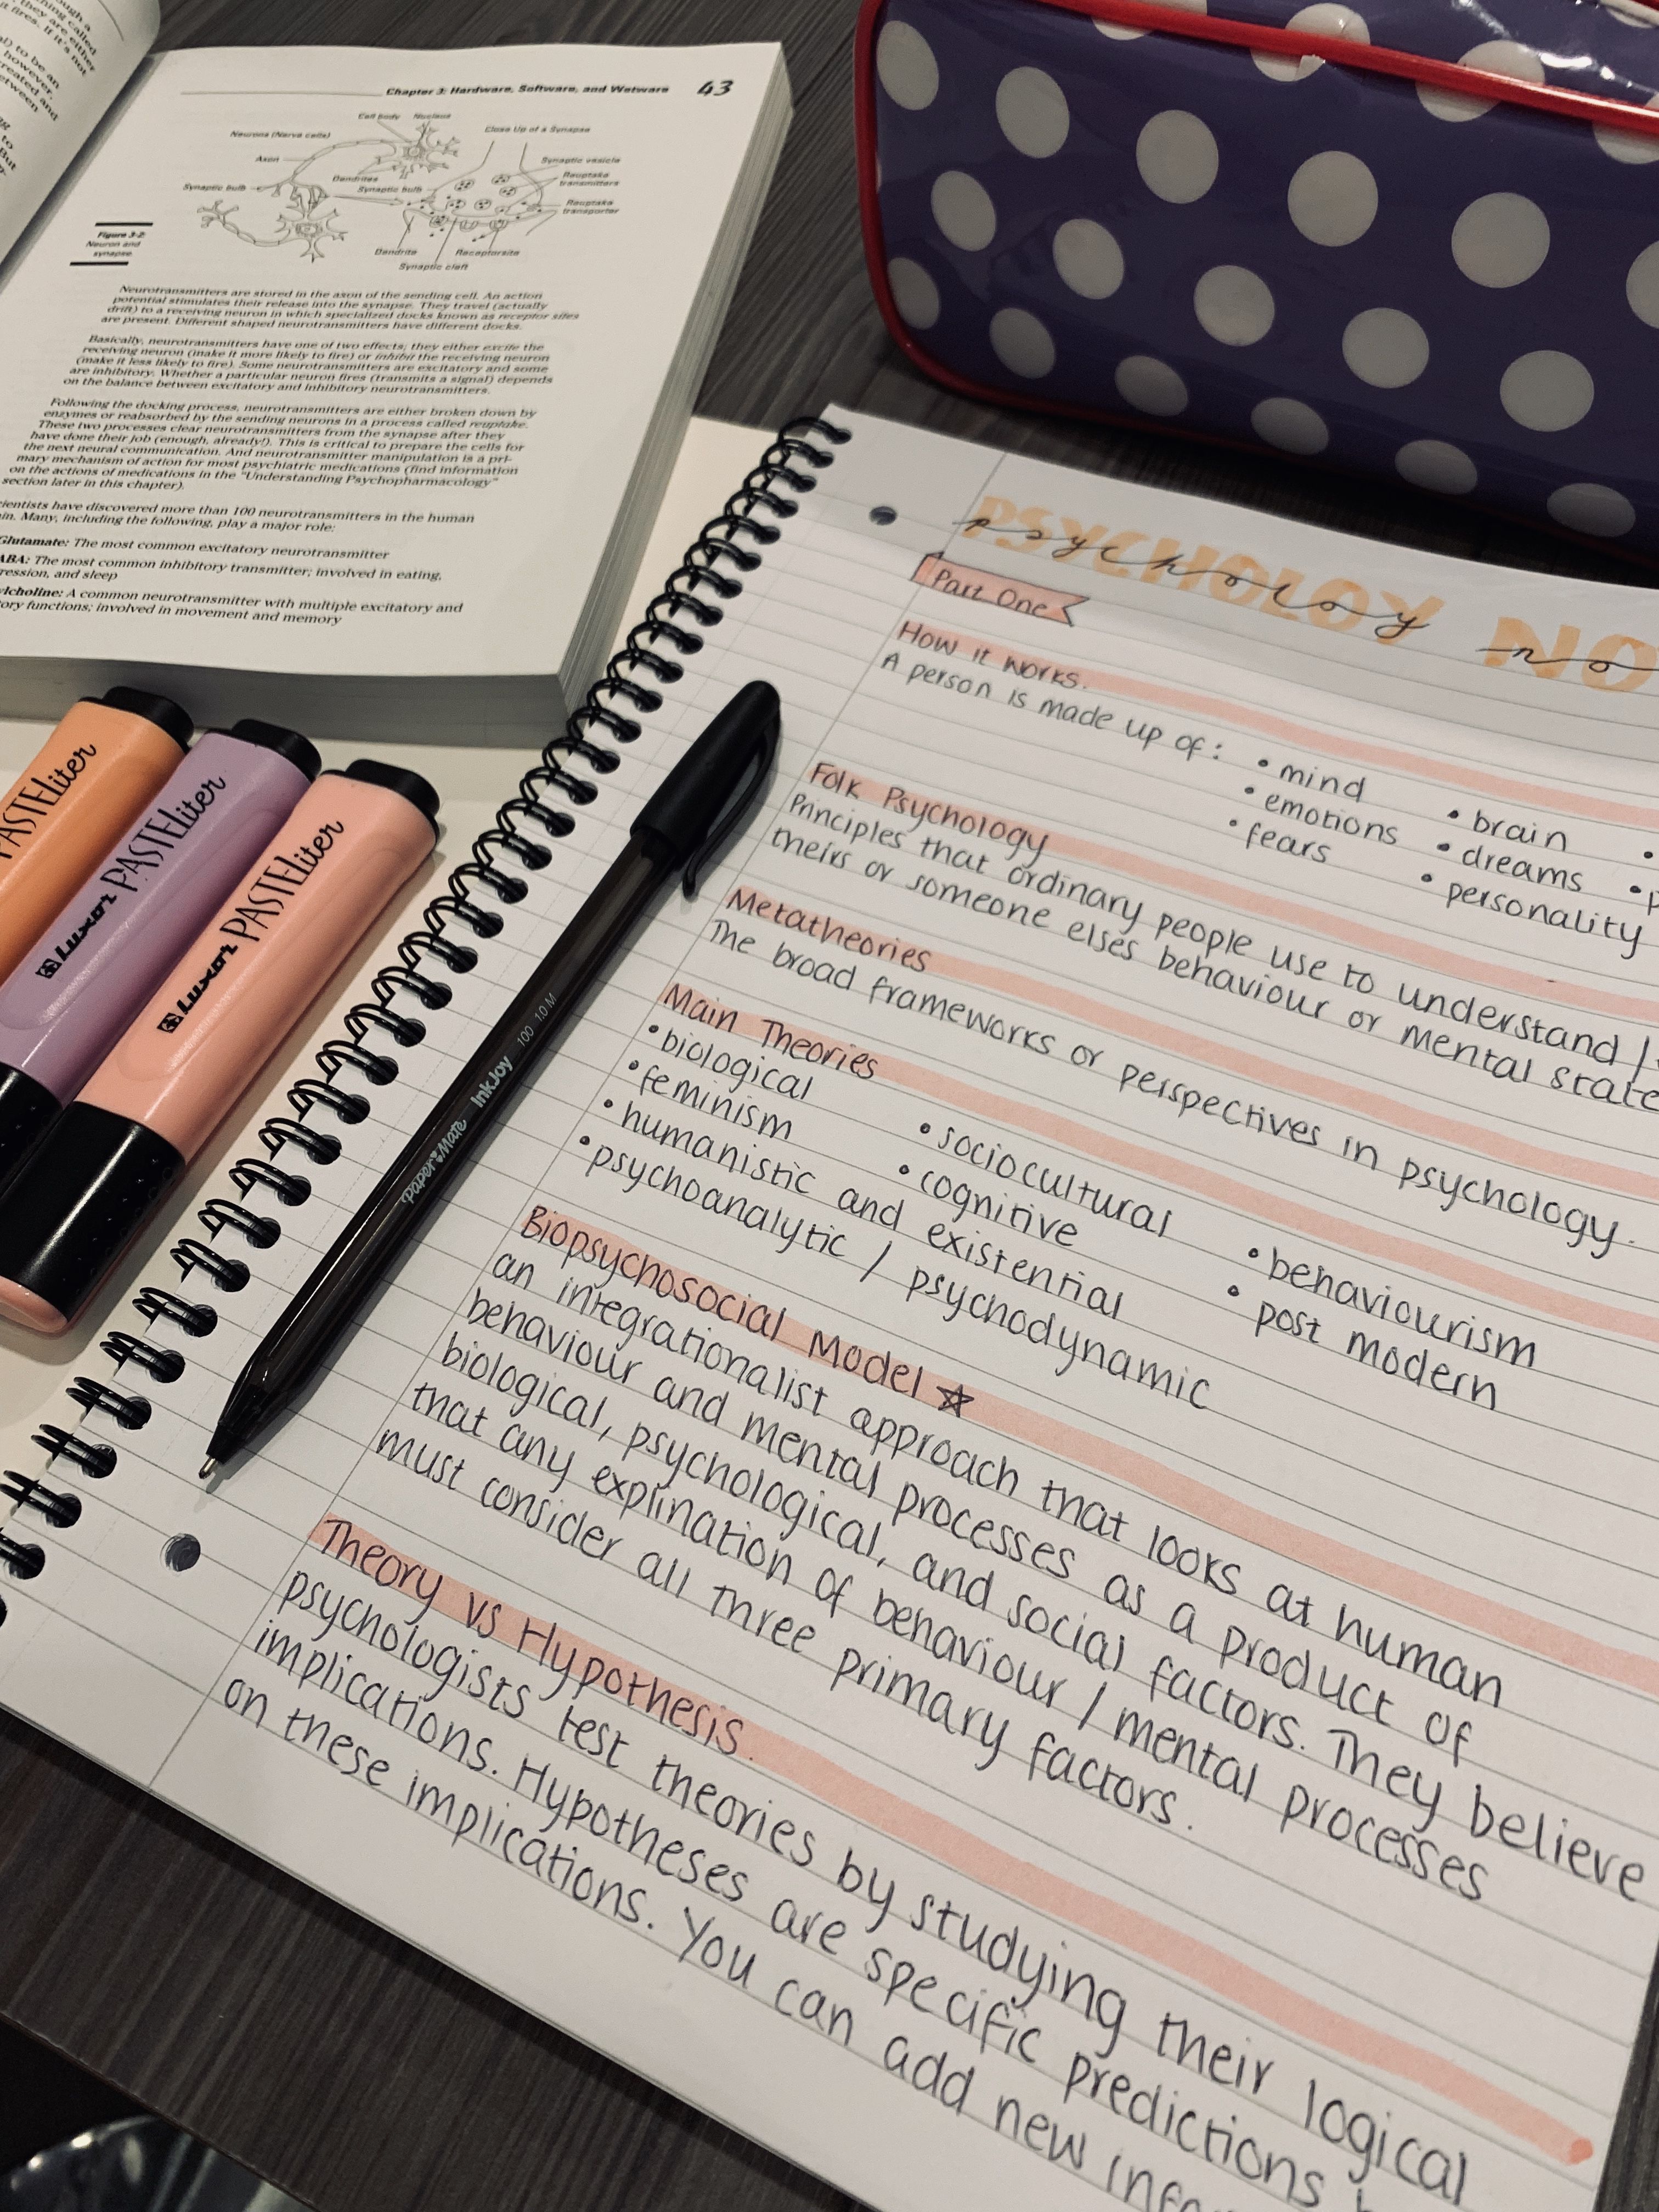 Chapter 3: Hardware, Software, and Wetware 43
Cell body Nucleus
Neurons (Nerve cells)
Close Up of a Synapse
Axon
Synaptic vesicle
Dendrites
Reuptake
transmitters
Synaptic bulb
Synaptic bulb
Reuptake
transporter
Figure 3-2:
Neuron and
synapse.
Dendrite
Receptorsite
Synaptic cleft
Neurotransmitters are stored in the axon of the sending cell. An action
potential stimulates their release into the synapse. They travel (actually
drift) to a receiving neuron in which specialized docks known as receptor sites
are present. Different shaped neurotransmitters have different docks.
Basically, neurotransmitters have one of two effects; they either excite the
receiving neuron (make it more likely to fire) or inhibit the receiving neuron
(make it less likely to fire). Some neurotransmitters are excitatory and some
are inhibitory. Whether a particular neuron fires (transmits a signal) depends
on the balance between excitatory and inhibitory neurotransmitters.
Following the docking process, neurotransmitters are either broken down by
enzymes or reabsorbed by the sending neurons in a process called reuptake.
These two processes clear neurotransmitters from the synapse after they
have done their job (enough, already!). This is critical to prepare the cells for
the next neural communication. And neurotransmitter manipulation is a pri-
mary mechanism of action for most psychiatric medications (find information
on the actions of medications in the "Understanding Psychopharmacology"
section later in this chapter).
cientists have discovered more than 100 neurotransmitters in the human
in. Many, including the following, play a major role:
Glutamate: The most common excitatory neurotransmitter
ABA: The most common inhibitory transmitter; involved in eating,
ression, and sleep
ylcholine: A common neurotransmitter with multiple excitatory and
ory functions; involved in movement and memory
PASTELiter
Luxor PASTELiter
Luxor PASTELiter
Paper Mate InkJoy 100 1.0 M
PSYCHOLOY NO
psycholoy no
Part One
How it works.
A person is made up of:
• mind
• emotions
• fears
• brain
• dreams
• personality
• p
Folk Psychology
Principles that ordinary people use to understand /
theirs or someone elses behaviour or mental state
Metatheories
The broad frameworks or perspectives in psychology.
Main Theories
• biological
• feminism
• humanistic and existential
• psychoanalytic / psychodynamic
• sociocultural
• cognitive
• behaviourism
• post modern
Biopsychosocial Model ☆
an integrationalist approach that looks at human
behaviour and mental processes as a product of
biological, psychological, and social factors. They believe
that any explination of behaviour / mental processes
must consider all three primary factors.
Theory vs Hypothesis.
psychologists test theories by studying their logical
implications. Hypotheses are specific predictions b
on these implications. You can add new infor